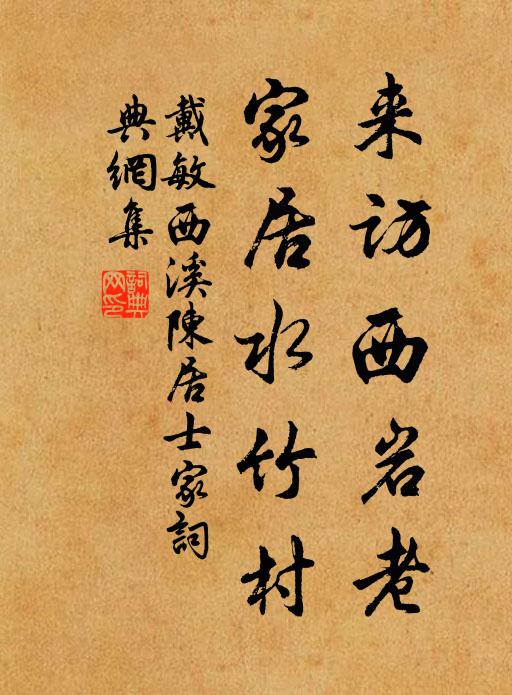 来访西岩老
家居水竹村
戴敏西溪陳居士家詞
典網集
詞典网印